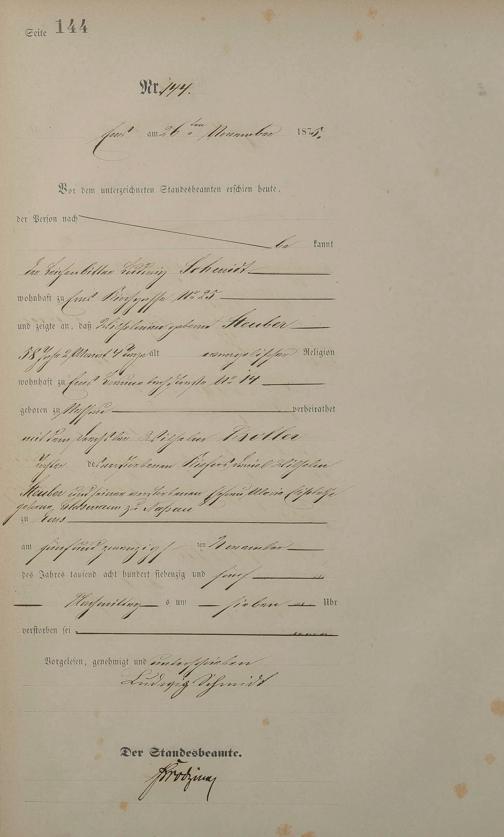 Seite 144
Nr. 144.
Ems am 26ten November 1875.
Vor dem unterzeichneten Standesbeamten erschien heute,
der Person nach
be kannt
der Leichenbitter Ludwig Schmidt
wohnhaft zu Ems Kirchgasse No 25
und zeigte an, daß Wilhelmine geborne Steuber
58 Jahr 2 Monat 4 Tage alt evangelischer Religion
wohnhaft zu Ems No 14
geboren zu Nassau verheirathet
mit dem Wilhelm
Tochter des verstorbenen Wilhelm
Steuber und seiner verstorbenen Ehefrau Maria
geborne zu Nassau
zu Ems
am fünf und zwanzigsten November
des Jahres tausend acht hundert siebenzig und fünf
Nachmittags um sieben Uhr
verstorben sei
Vorgelesen, genehmigt und unterschrieben
Ludwig Schmidt
Der Standesbeamte.